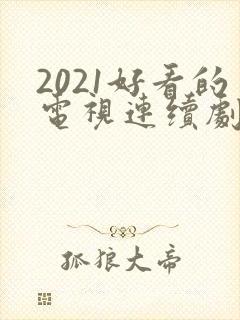 2021好看的
電視連續劇
孤狼大帝